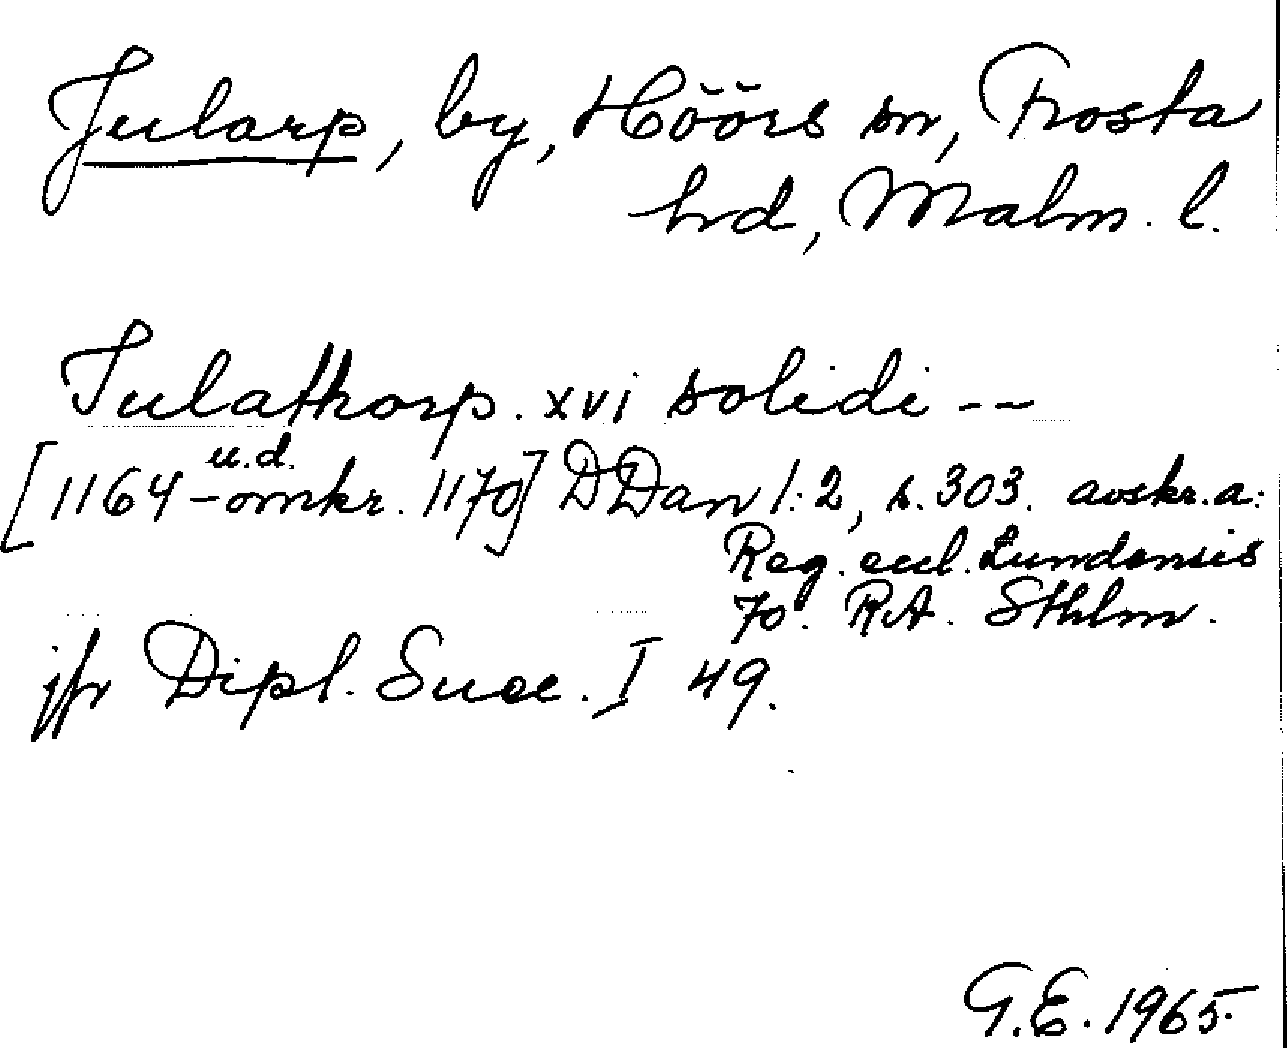 Jularp, by, Höörs sn, Frosta
hd, Malm. l.
Julathorp. xvi solidi --
u.d.
[1164 - omkr. 1170] DDan 1:2, s. 303. avskr. a:
Reg. eccl. Lundensis
70. RA. Sthlm.
jfr Dipl. Suec. I 49.
G.E. 1965.